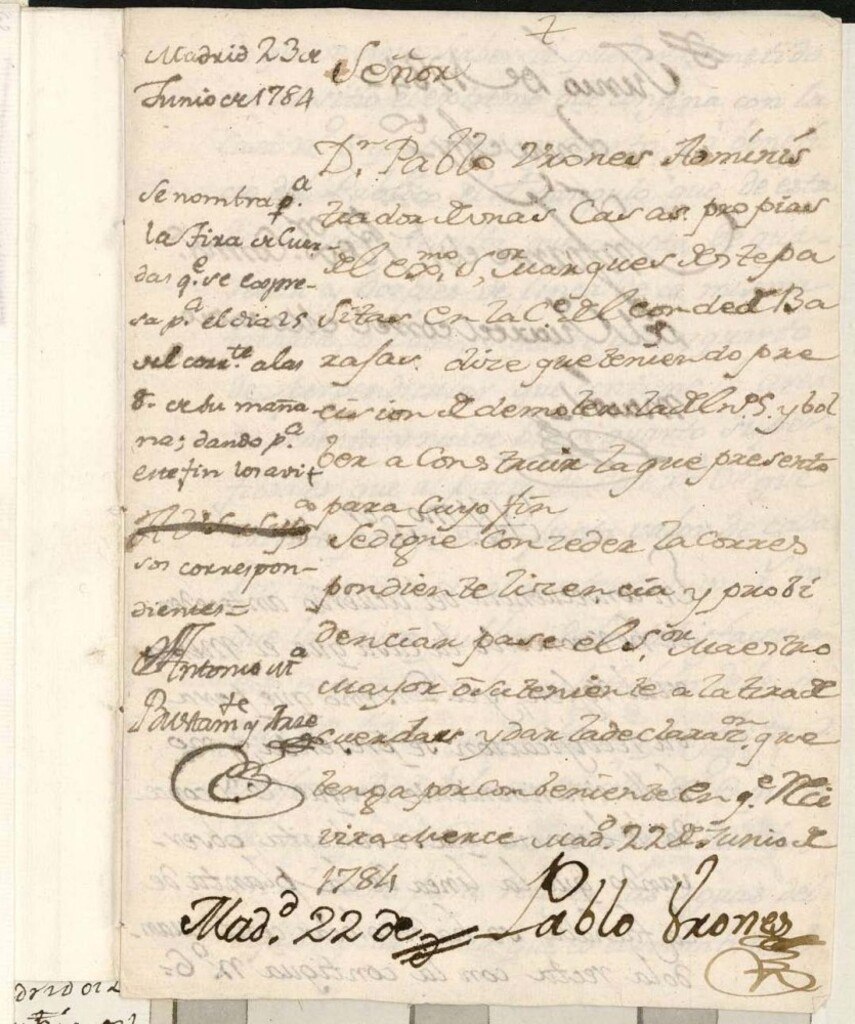 Madrid 23 de
Junio de 1784
Se nombra p.ª
la tira de Cuer-
das q.e se expre-
sa p.ª el dia 25
del corr.te a las
8. de su maña
na; dando p.ª
este fin los avi
sos correspon-
dientes=
Antonio M.ª
Bustam.te y
Señor
D.n Pablo Vrones Adminis
trador de unas Casas propias
del ex.mo S.or Marques de estepa
sitas en la C.e del conde de Ba
rajas. dize que teniendo pre
cision de demoler la del n.º 5. y bol
ber a Construir la que presento
para Cuyo fin
se digne Conzeder la Corres
pondiente lizencia y probi
denciar pase el S.or Maestro
Mayor o su teniente a la tira de
cuerdas y dar la declaraz.on que
tenga por Combeniente en q.e Reci
vira merce Mad.d 22 de Junio de
1784
Mad.d 22 de
Pablo Vrones